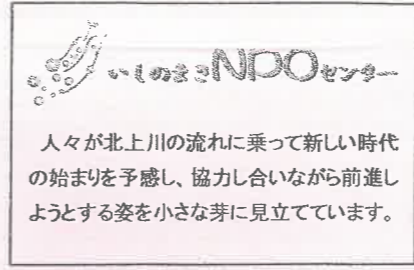 いしのまきNPOセンター
人々が北上川の流れに乗って新しい時代
の始まりを予感し、協力し合いながら前進し
ようとする姿を小さな芽に見立てています。